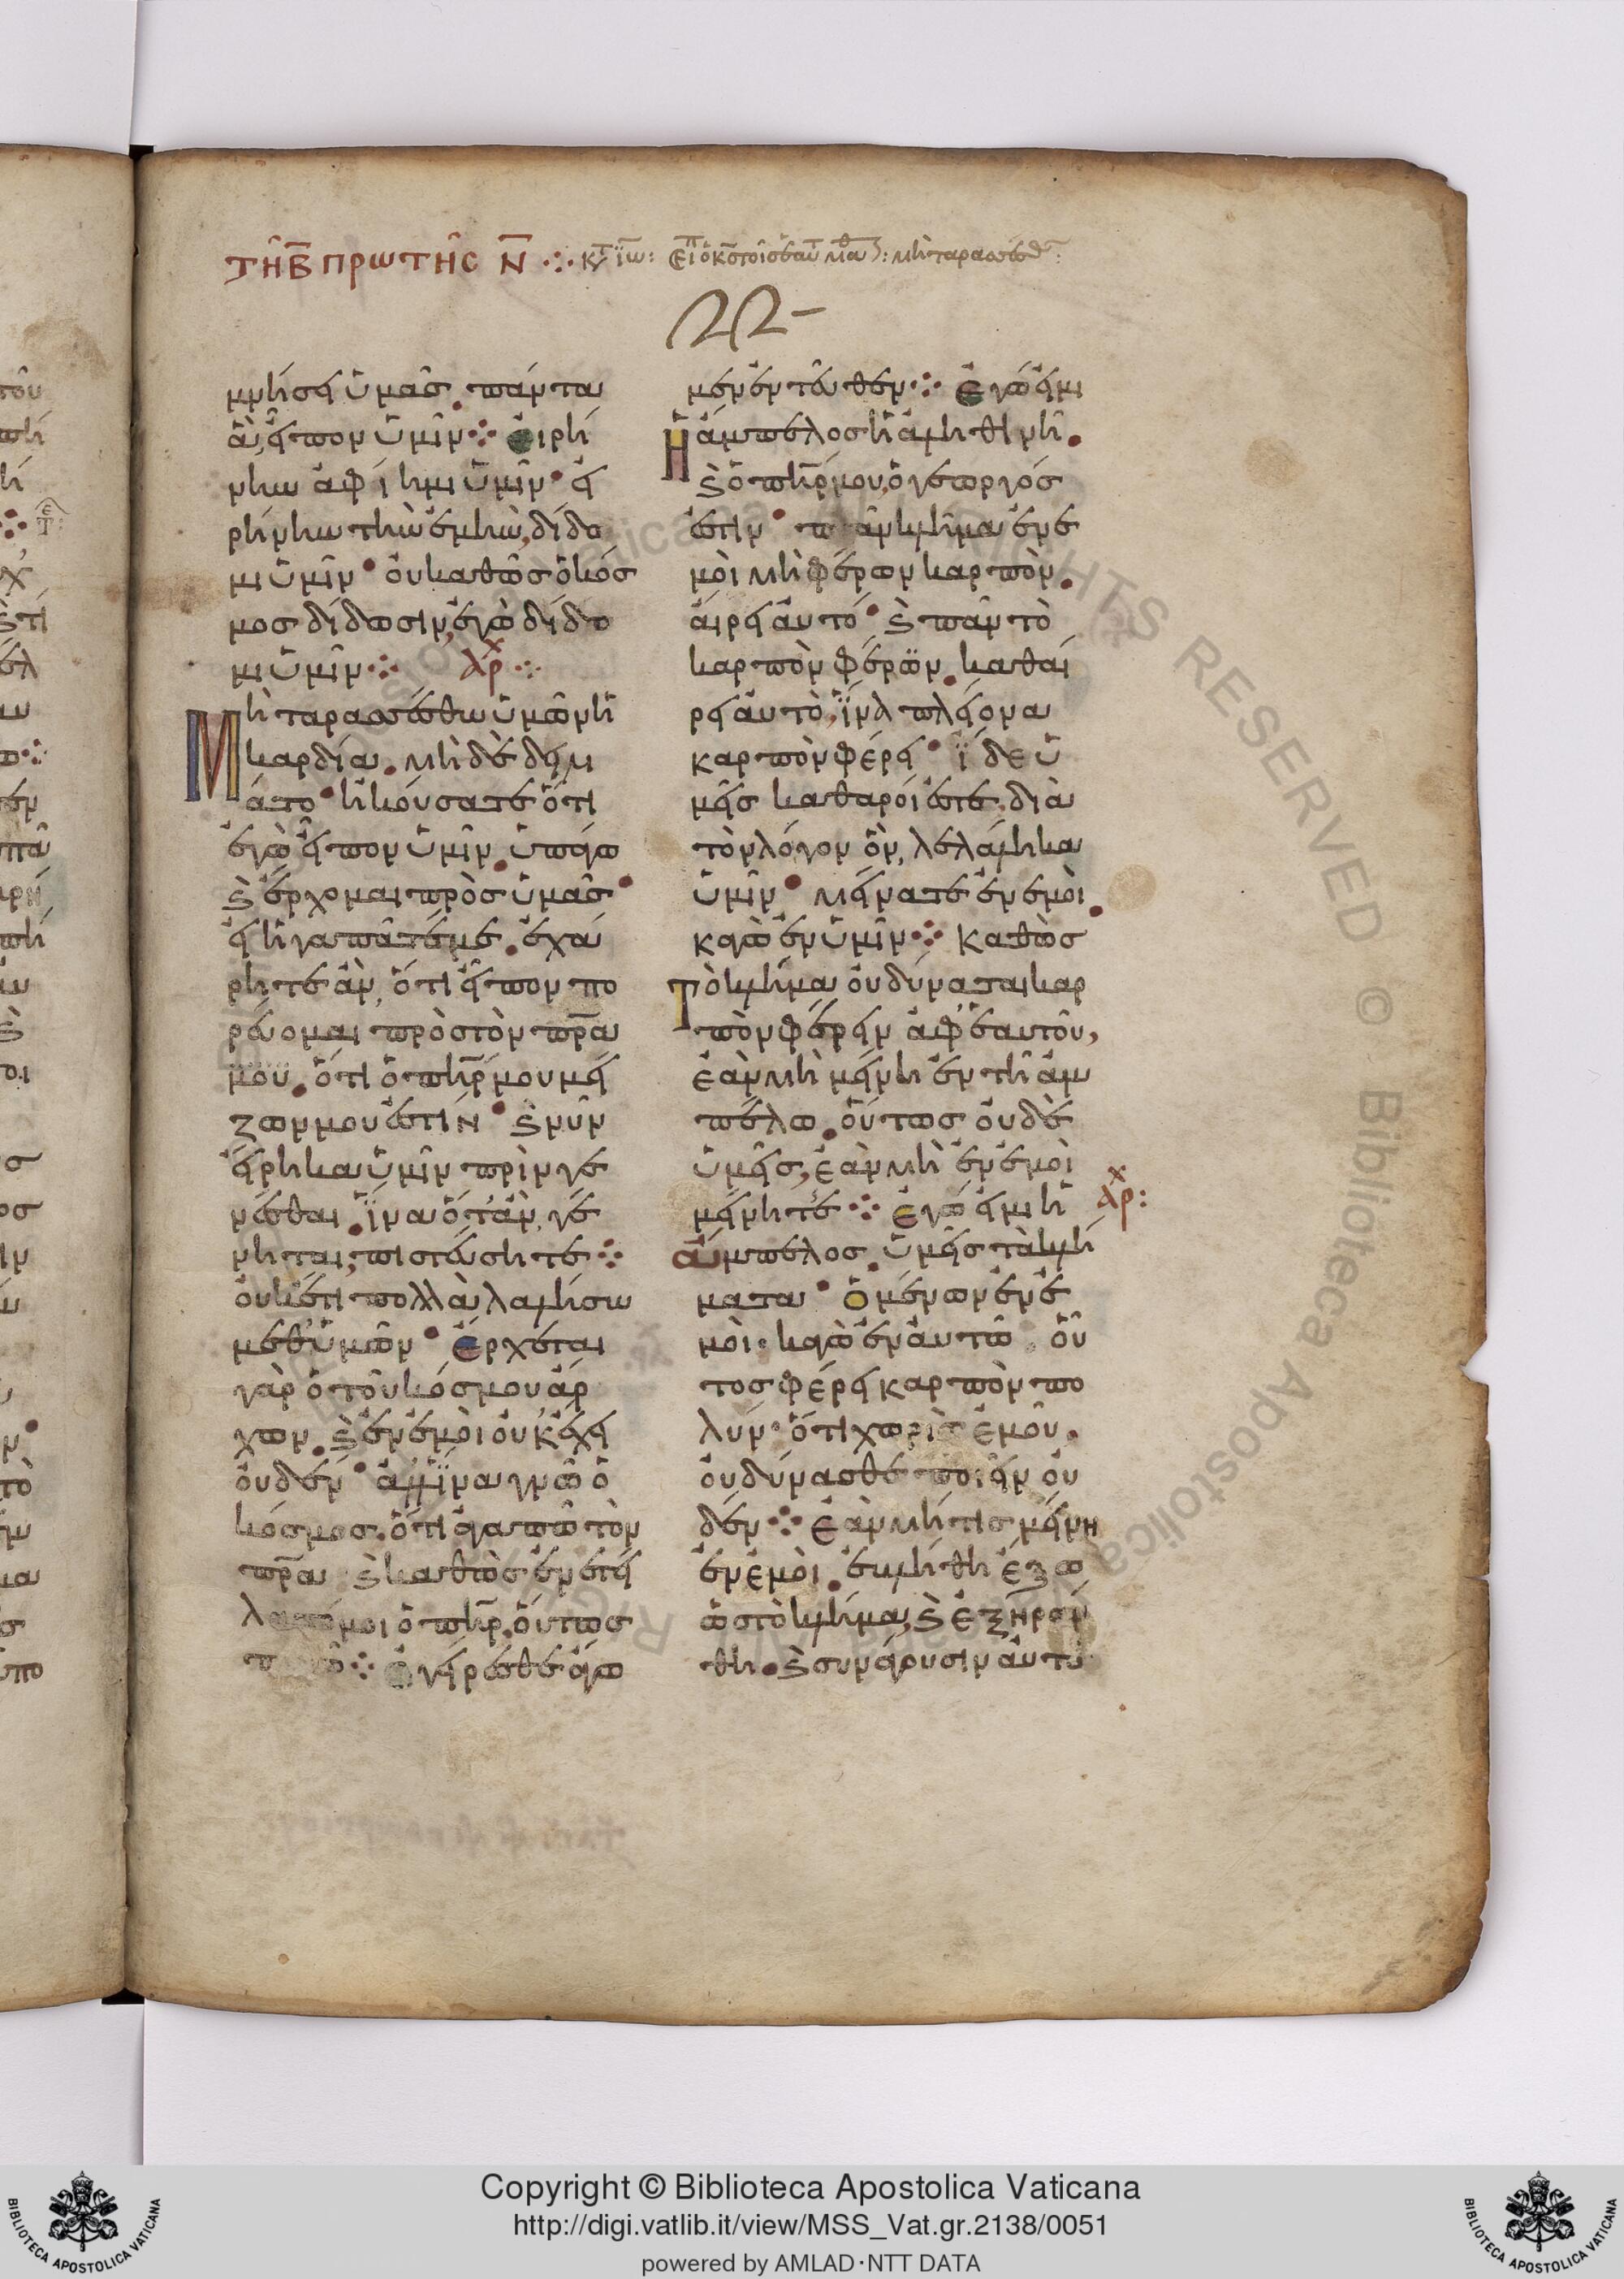 ΤΗ Β ΠΡΩΤΗΣ Ν ⁘ κτ ιω: ειπ ο κς τοις εαυτ μαθ: μὴ ταρασσεσθ
22-
μνήσει ὑμᾶς. πάντα
ἃ, εἶπον ὑμῖν ⁘ ειρή
νην ἀφίημι ὑμῖν · εἰ
ρήνην τὴν ἐμὴν, δίδω
μι ὑμῖν · οὐ καθὼς ὁ κόσ
μος δίδωσιν, ἐγὼ δίδω
μι ὑμῖν ⁘ ἀρχ ⁘
Μὴ ταρασσέσθω ὑμῶν ἡ
καρδία. μὴ δὲ δειλι
άτω · ἠκούσατε ὅτι
ἐγὼ εἶπον ὑμῖν. ὑπάγω
ϗ ἔρχομαι πρὸς ὑμᾶς ·
εἰ ἠγαπᾶτέ με. ἐχά
ρητε ἂν, ὅτι εἶπον πο
ρεύομαι πρὸς τὸν πρα
μου. ὅτι ὁ πηρ μου μεί
ζων μου ἐστιν · ϗ νῦν
εἴρηκα ὑμῖν πρὶν γε
νέσθαι. ἵνα ὅτ' ἂν, γέ
νηται, πιστεύσητε ⁘
οὐκέτι πολλὰ λαλήσω
μεθ' ὑμῶν · ἔρχεται
γὰρ ὁ τοῦ κόσμου ἄρ
χων. ϗ ἐν ἐμοὶ οὐκ ἔχει
οὐδέν · ἀλλ' ἵνα γνῶ ὁ
κόσμος. ὅτι ἀγαπῶ τὸν
πρα ϗ καθὼς ἐνετεί
λατό μοι ὁ πηρ, οὕτως
ποιῶ ⁘ ἐγείρεσθε ἄγω
μεν ἐντεῦθεν ⁘ Εγώ εἰμι
ἡ ἄμπελος ἡ ἀληθινὴ.
ϗ ὁ πηρ μου, ὁ γεωργός
ἐστιν · πᾶν κλῆμα ἐν ἐ
μοὶ μὴ φέρων καρπὸν.
αἴρει αὐτό · ϗ πᾶν τὸ
καρπὸν φέρων. καθαί
ρει αὐτὸ, ἵνα πλείονα
καρπὸν φέρει · ἴδε ὑ
μεῖς καθαροί ἐστε, διὰ
τὸν λόγον ὃν, λελάληκα
ὑμῖν · μείνατε ἐν ἐμοὶ.
κἀγὼ ἐν ὑμῖν ⁘ καθὼς
Τὸ κλῆμα οὐ δύναται καρ
πὸν φέρειν ἀφ' ἑαυτοῦ,
ἐὰν μὴ μείνη ἐν τῆ ἀμ
πέλω. οὕτως οὐδὲ
ὑμεῖς, ἐὰν μὴ ἐν ἐμοὶ
μείνητέ ⁘ Εγώ εἰμι ἡ ἀρχ:
ἄμπελος. ὑμεῖς τὰ κλή
ματα · ὁ μένων ἐν ἐ
μοὶ. κἀγὼ ἐν αὐτῶ. οὗ
τος φέρει καρπὸν πο
λύν · ὅτι χωρὶς ἐμοῦ.
οὐ δύνασθε ποιεῖν οὐ
δέν ⁘ Ἐὰν μή τις μείνη
ἐν ἐμοὶ. ἐκλήθη ἔξω
ὡς τὸ κλῆμα, ϗ ἐξηράν
θη. ϗ συνάγουσιν αὐτὸ
Copyright © Biblioteca Apostolica Vaticana
http://digi.vatlib.it/view/MSS_Vat.gr.2138/0051
powered by AMLAD·NTT DATA
BIBLIOTECA APOSTOLICA VATICANA
BIBLIOTECA APOSTOLICA VATICANA